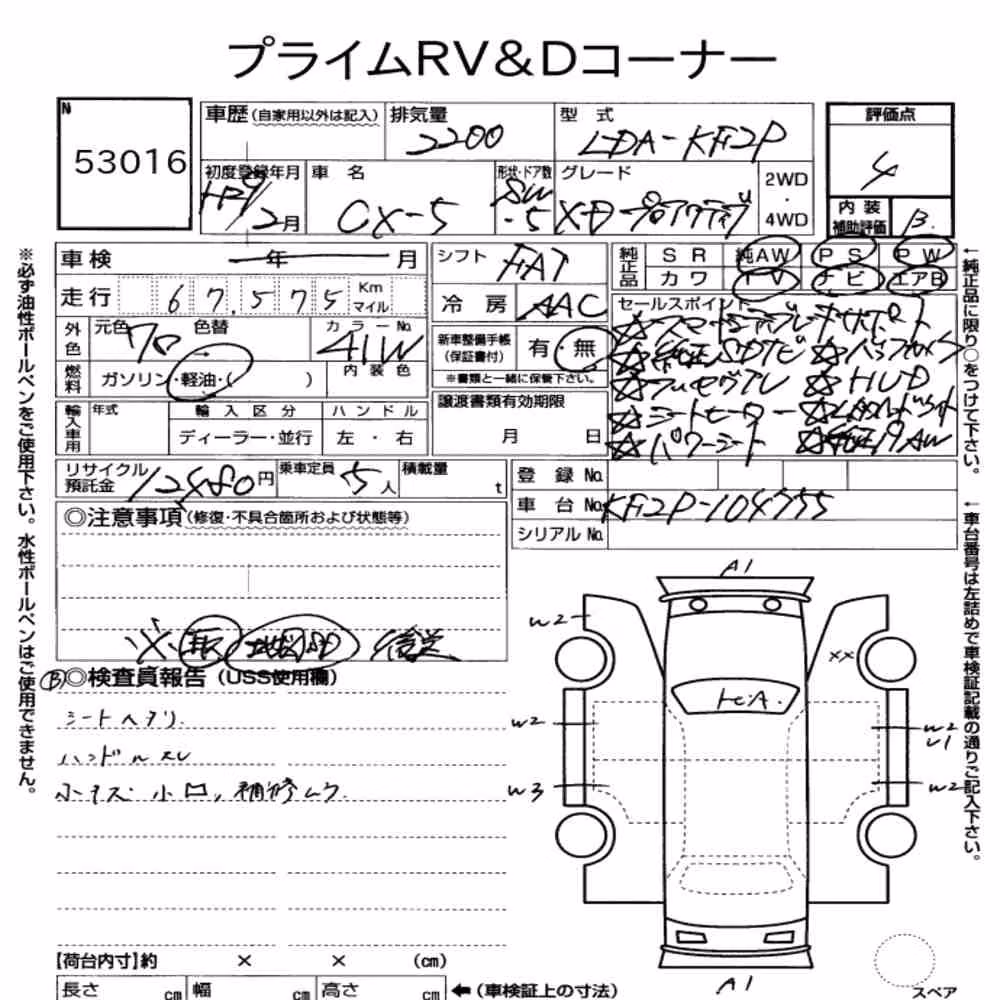 プライムRV&Dコーナー
N
53016
車歴(自家用以外は記入)
排気量
2200
型 式
LDA-KF2P
評価点
4
初度登録年月
H29/2月
車 名
CX-5
形状・ドア数
SW
・5
グレード
XD プロアクティブ
2WD
・
4WD
内 装
補助評価
B
車 検
年 月
シフト
FAT
純正品
S R
純AW
P S
P W
カ ワ
T V
ナ ビ
エアB
走 行
67,575
Km
マイル
冷 房
AAC
セールスポイント
☆スマートシティブレーキサポート
☆純正SDナビ ☆バックカメラ
☆フルセグTV ☆HUD
☆シートヒーター
☆パワーシート ☆純正19AW
外色
元色
色替
カラーNo.
41W
新車整備手帳
(保証書付)
有・無
※書類と一緒に保管下さい。
燃料
ガソリン・軽油・( )
内 装 色
輸入車用
年式
輸 入 区 分
ハ ン ド ル
ディーラー・並行
左 ・ 右
譲渡書類有効期限
月 日
リサイクル
預託金
12480円
乗車定員
5人
積載量
t
登 録 No.
車 台 No.
KF2P-104755
シリアル No.
◎注意事項(修復・不具合箇所および状態等)
※
◎検査員報告(USS使用欄)
シートヘタリ
ハンドルスレ
小キズ 小凹, 補修ムラ
A1
W2
XX
W2
W2
W3
W2
A1
スペア
【荷台内寸】約 × × (cm)
長さ cm
幅 cm
高さ cm
←(車検証上の寸法)
※必ず油性ボールペンをご使用下さい。水性ボールペンはご使用できません。
←純正品に限り○をつけて下さい。
←車台番号は左詰めで車検証記載の通りご記入下さい。